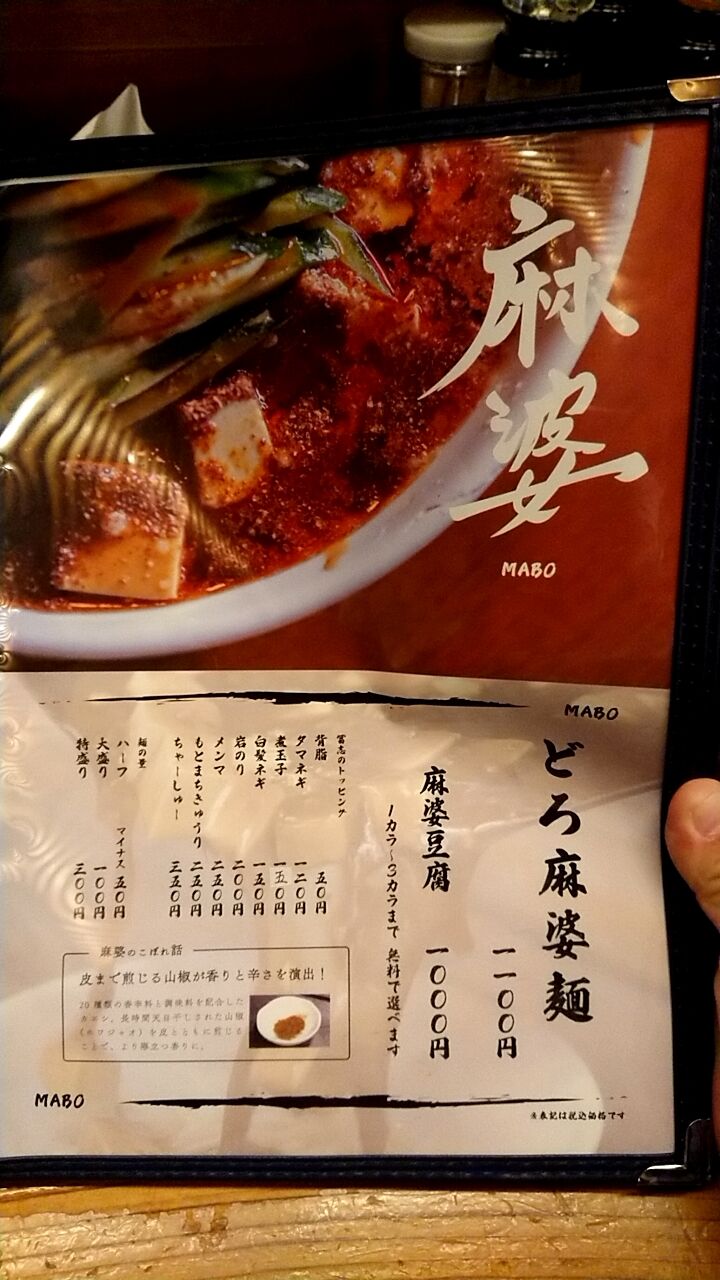 麻婆
MABO
MABO
どろ麻婆麺
一一〇〇円
麻婆豆腐
一〇〇〇円
1カラ〜3カラまで 無料で選べます
冨志のトッピング
背脂 五〇円
タマネギ 一二〇円
煮玉子 一五〇円
白髪ネギ 一五〇円
岩のり 二〇〇円
メンマ 二五〇円
もとまちきゅうり 二五〇円
ちゃーしゅー 三五〇円
麺の量
ハーフ マイナス 五〇円
大盛り 一〇〇円
特盛り 三〇〇円
麻婆のこぼれ話
皮まで煎じる山椒が香りと辛さを演出！
20種類の香辛料と調味料を配合した
カエン。長時間天日干しされた山椒
(ホワジャオ)を皮とともに煎じる
ことで、より際立つ香りに。
MABO
※表記は税込価格です